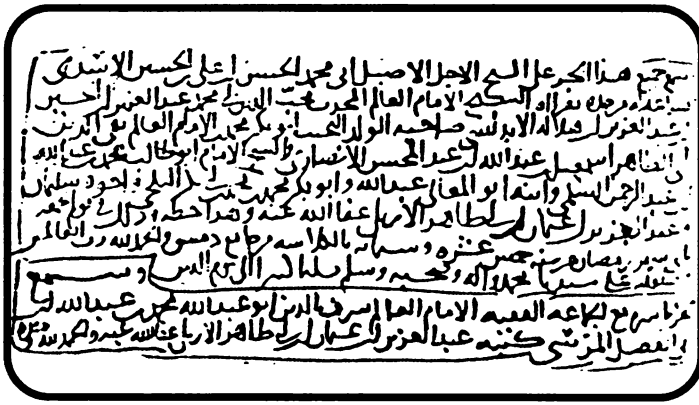 سمع جميع هذا الجزء على الشيخ الاجل الاصيل ابي محمد الحسن بن علي بن الحسين الاسدي
بقراءة الامام العالم المحدث محب الدين محمد عبد العزيز بن الحسين
عبد العزيز بن هلاله الاندلسي صاحبه الولد النجيب ابو بكر محمد بن الامام العالم تقي الدين
الطاهر اسمعيل بن عبد الله بن عبد المحسن الانصاري الامام ابو طالب محمد بن عبد الله
عبد الرحمن السلمي وابنه ابو المعالي عبد الله وابو بكر محمد بن محمد البلخي واخوه سليمان
عبد العزيز بن عثمان بن ابي طاهر الاربلي عفا الله عنه وهذا خطه وذلك في يوم
شهر رمضان من سنة خمس عشره وستمائة بالكلاسه من جامع دمشق والحمد لله رب العالمين
على سيدنا محمد واله وصحبه وسلم تسليما كثيرا الى يوم الدين وسمع
مع الجماعه الفقيه الامام العالم شرف الدين ابو عبد الله محمد بن عبد الله بن
ابي الفضل المرسي كتبه عبد العزيز بن عثمان بن ابي طاهر الاربلي عفا الله عنه والحمد لله